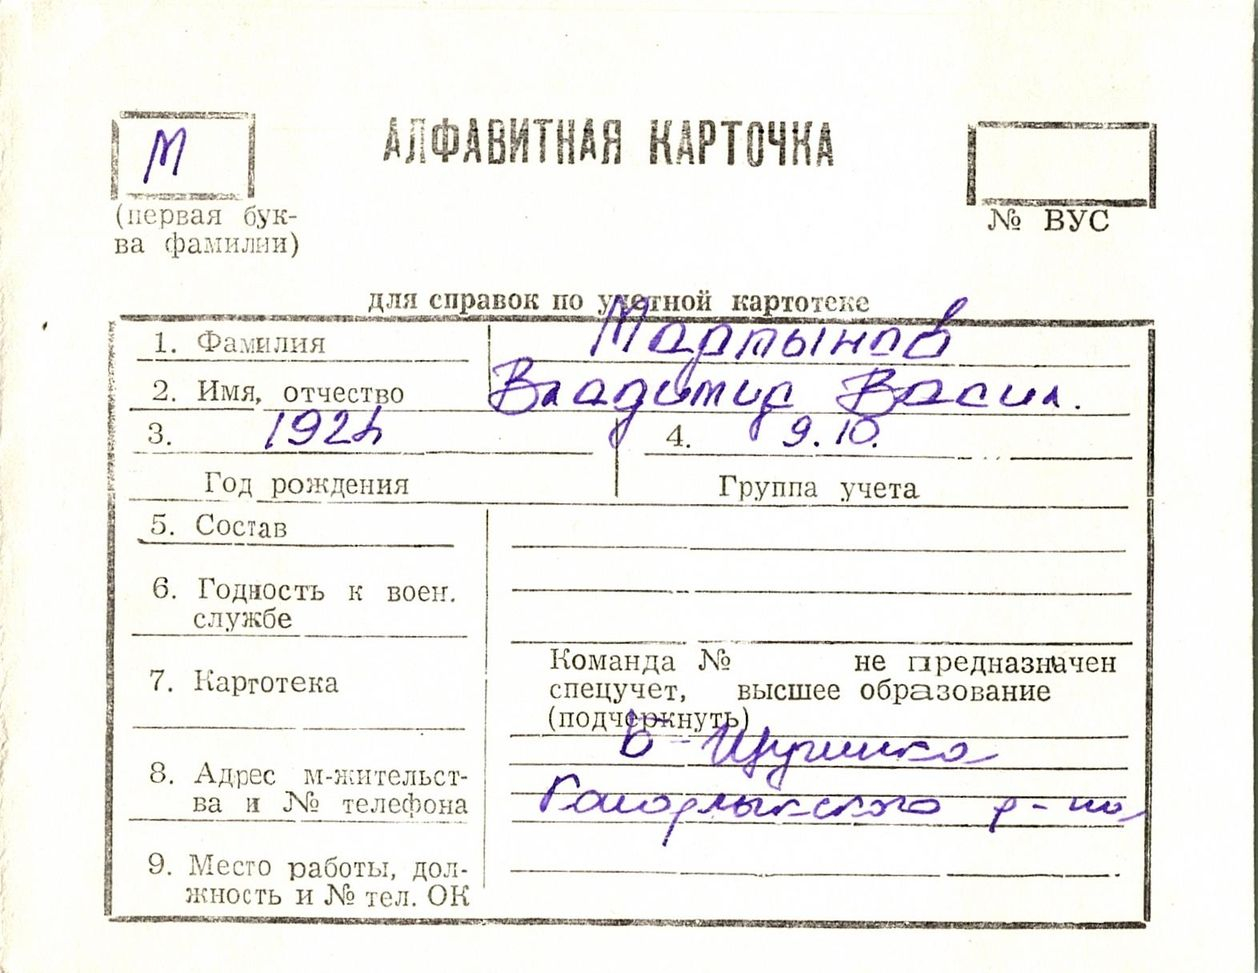 М
АЛФАВИТНАЯ КАРТОЧКА
(первая бук-
ва фамилии)
№ ВУС
для справок по учетной картотеке
1. Фамилия Мартынов
2. Имя, отчество Владимир Васил.
3. 1924 4. 9.10.
Год рождения Группа учета
5. Состав
6. Годность к воен.
службе
Команда № не предназначен
7. Картотека спецучет, высшее образование
(подчеркнуть)
Б-Щучинка
8. Адрес м-жительст-
ва и № телефона Кагарлыкского р-на
9. Место работы, дол-
жность и № тел. ОК